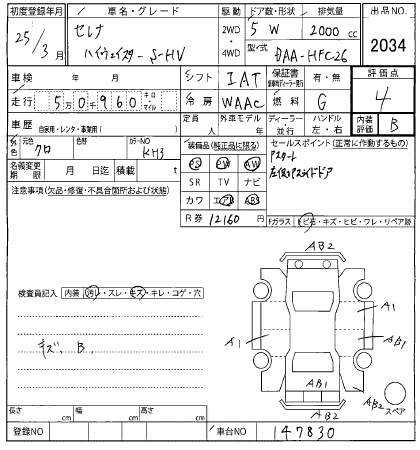 初度登録年月 車名・グレード 駆動 ドア数・形状 排気量 出品NO.
25/3月 セレナ 2WD・4WD 5 W 2000cc 2034
ハイウェイスター S-HV 型式 DAA-HFC26
車検 年 月 シフト IAT 保証書 有・無 評価点
走行 5万0千960 キロ・マイル 冷房 WAAC 燃料 G 4
車歴 自家用・レンタ・事業用( ) 定員 人 外車モデル 年 ディーラー・並行 ハンドル 左・右 内装評価 B
外色 元色 クロ 色替 カラーNO KH3 装備品(純正品に限る) セールスポイント(正常に動作するもの)
名義変更期限 月 日迄 積載 t PS PW AW
注意事項(欠品・修復・不具合箇所および状態) SR TV ナビ
カワ エアB ABS
R券 12160 円
Fガラス トビ石・キズ・ヒビ・ワレ・リペア跡
AB2
検査員記入 内装 汚レ・スレ・キズ・キレ・コゲ・穴
A1
キズ、B、
A1 AB1
AB1
AB2 AB2 スペア
長さ cm 幅 cm 高さ cm
登録NO 車台NO 147830